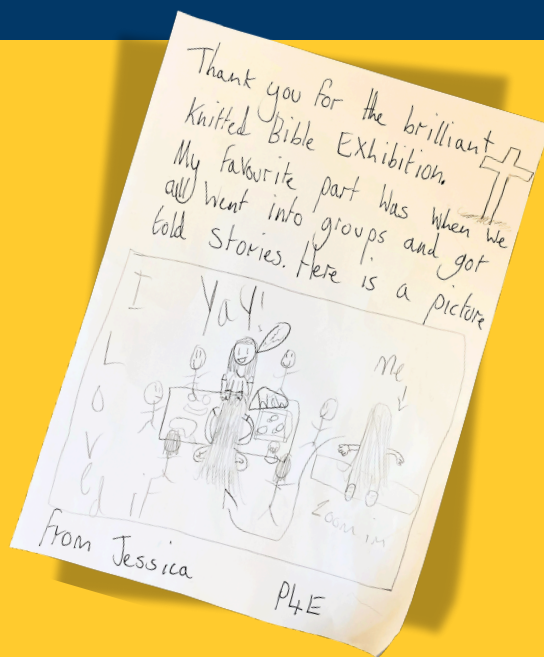 Thank you for the brilliant
Knitted Bible Exhibition.
My favourite part was when we
all went into groups and got
told stories. Here is a picture
I Loved it
Yay!
Me
Zoom in
From Jessica
P4E